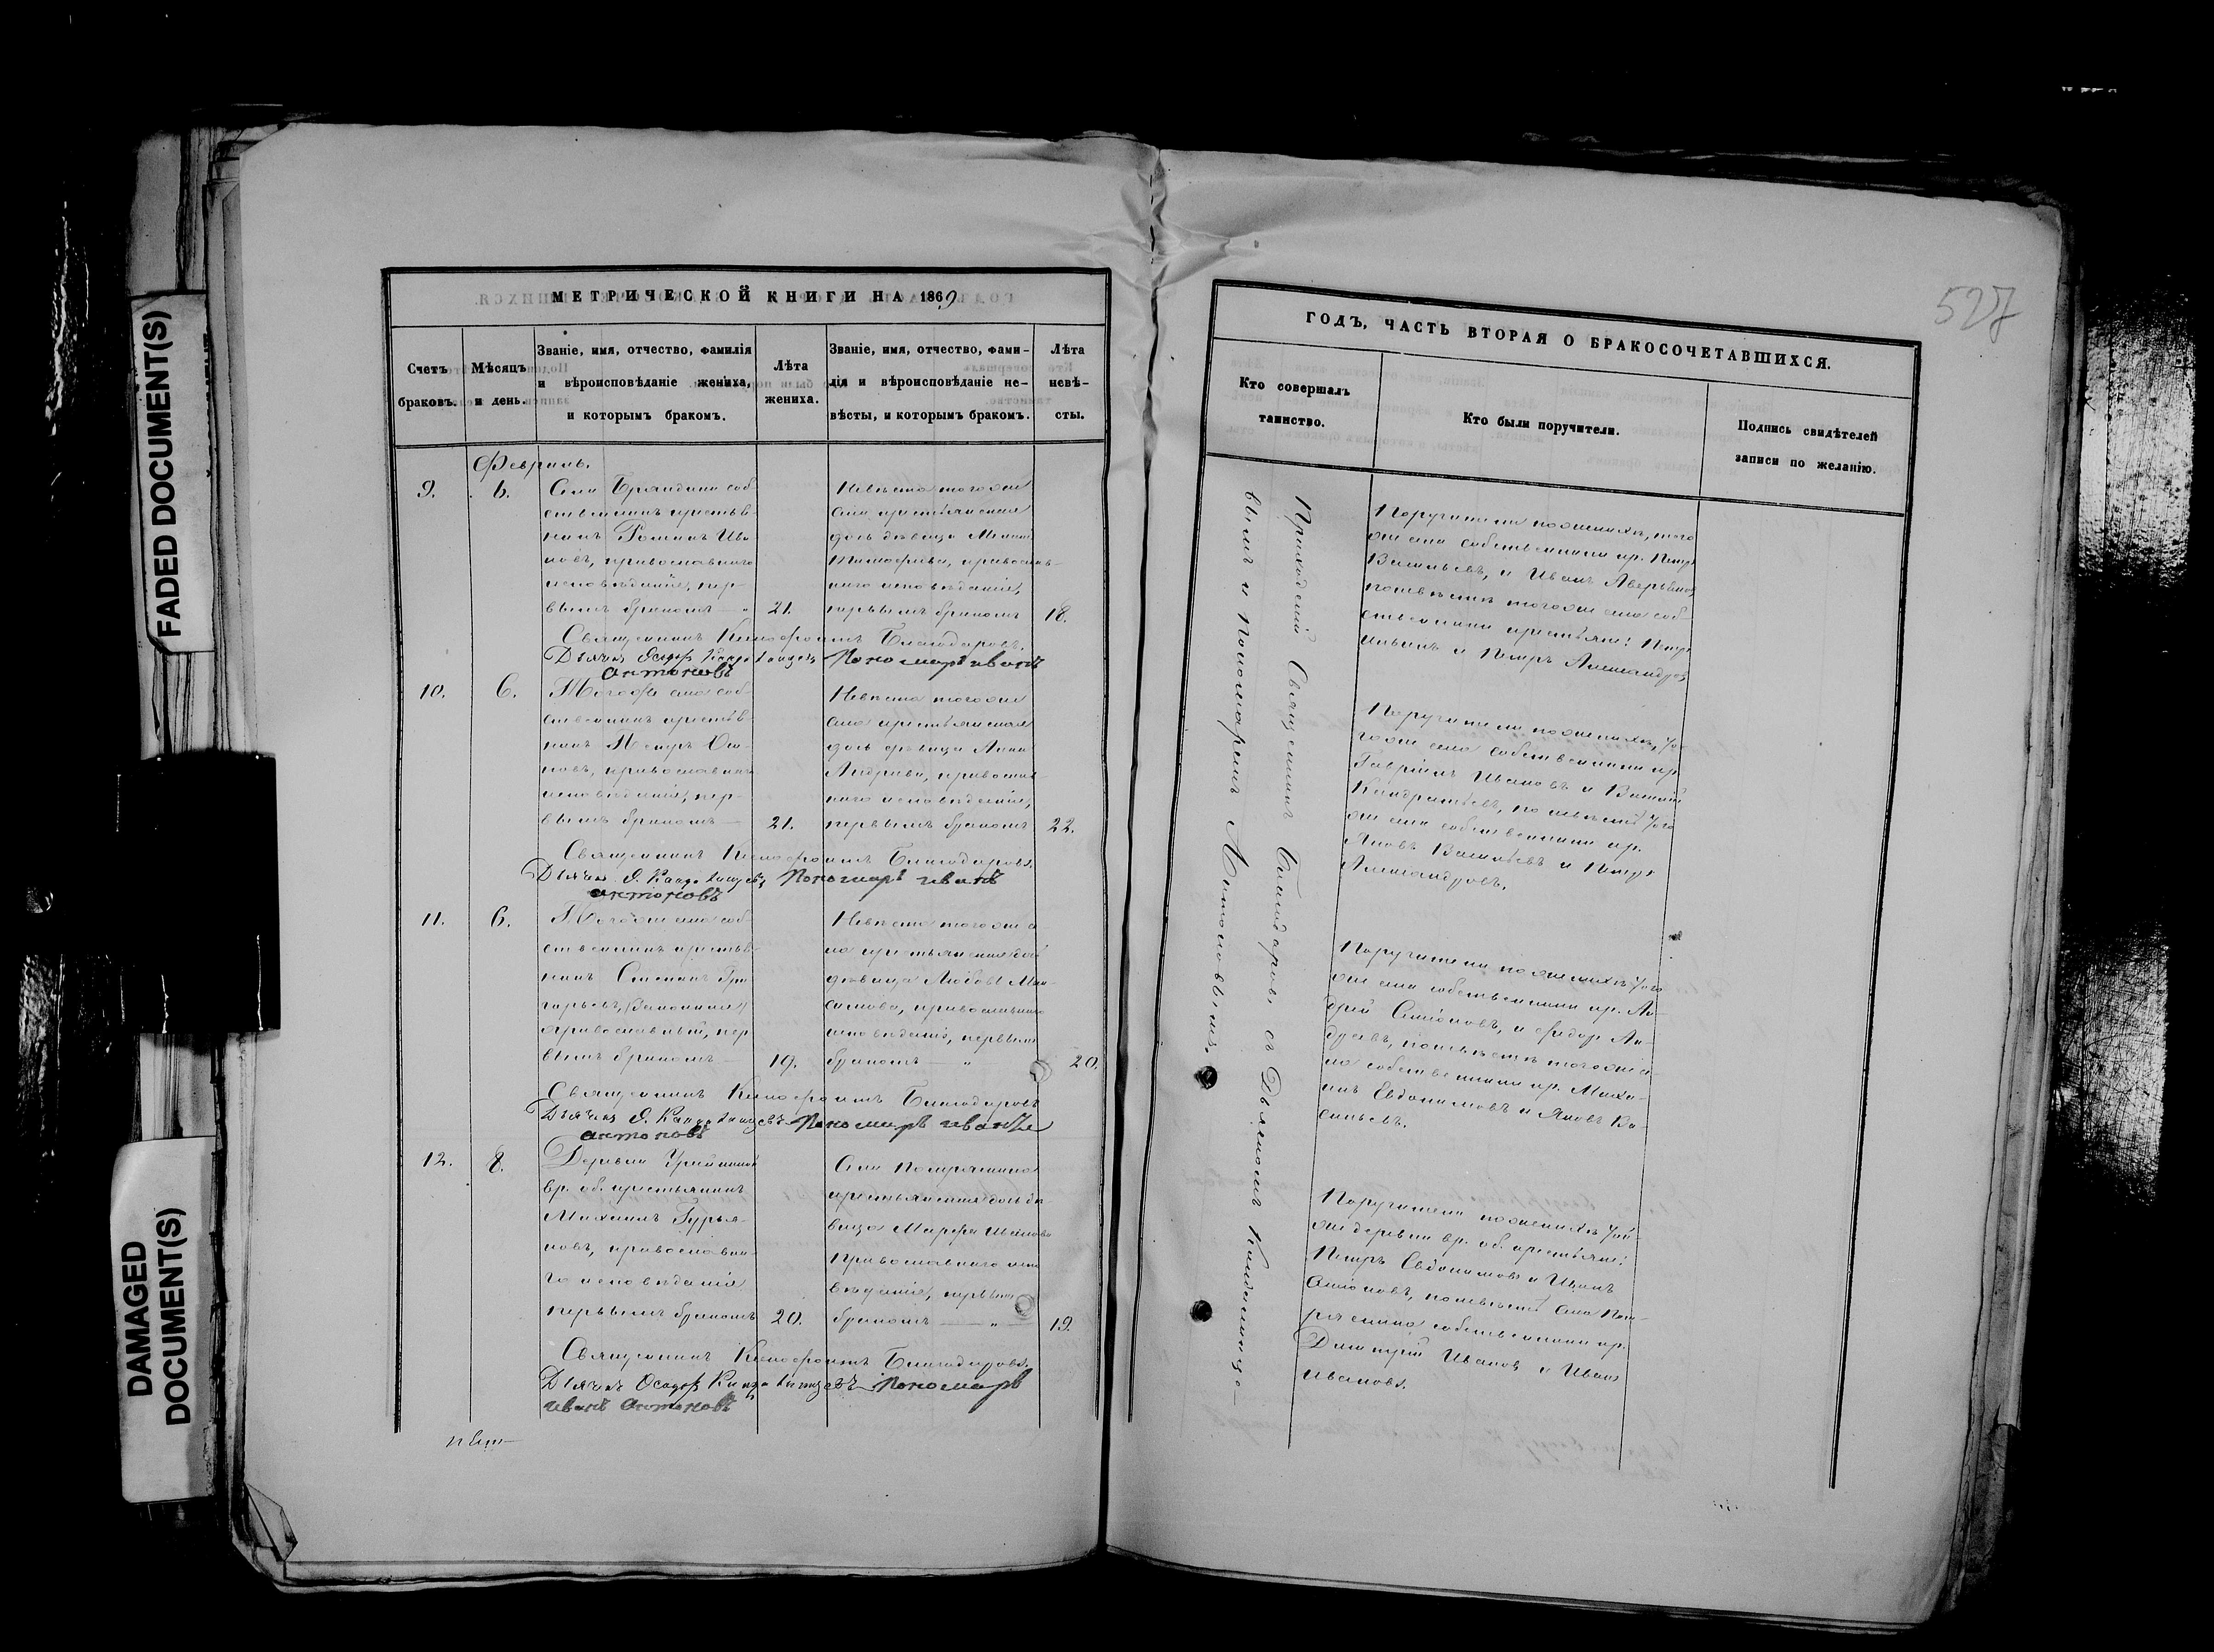 FADED DOCUMENT(S)
DAMAGED
DOCUMENT(S)
МЕТРИЧЕСКОЙ КНИГИ НА 1869
Счетъ
браковъ.
Мѣсяцъ
и день.
Званіе, имя, отчество, фамилія
и вѣроисповѣданіе жениха,
и которымъ бракомъ.
Лѣта
жениха.
Званіе, имя, отчество, фами-
лія и вѣроисповѣданіе не-
вѣсты, и которымъ бракомъ.
Лѣта
невѣ-
сты.
9.
6.
Села соб
ственникъ крестья
нинъ Романъ Ива
новъ, православнаго
исповѣданія, пер-
вымъ бракомъ — "
21.
Невѣста тогоже
села крестьянская
дочь дѣвица
Тимофѣева, православ-
наго исповѣданія,
первымъ бракомъ
18.
Священникъ Ксенофонтъ Благодаровъ.
Дьячекъ Пономарь иванъ
антоновъ
10.
6.
Тогоже села соб
ственникъ крестья
нинъ Петръ
новъ, православнаго
исповѣданія, пер-
вымъ бракомъ —
21.
Невѣста тогоже
села крестьянская
дочь дѣвица Анна
Андреева, православ-
наго исповѣданія,
первымъ бракомъ
22.
Священникъ Ксенофонтъ Благодаровъ.
Дьячекъ Пономарь иванъ
антоновъ
11.
6.
Тогоже села соб
ственникъ крестья
нинъ Степанъ Гри
горьевъ,
православный, пер
вымъ бракомъ —
19.
Невѣста тогоже се
ла крестьянская дочь
дѣвица Любовь Мак-
симова, православнаго
исповѣданія, первымъ
бракомъ "
20.
Священникъ Ксенофонтъ Благодаровъ
Дьячекъ Пономарь иванъ
антоновъ
12.
8.
Деревни
вр. об. крестьянинъ
Михаилъ Гурья-
новъ, православна-
го исповѣданія
первымъ бракомъ
20.
Села
крестьянская дочь дѣ-
вица Марфа Иванова
православнаго испо
вѣданія, первымъ
бракомъ — " —
19.
Священникъ Ксенофонтъ Благодаровъ.
Дьячекъ Пономарь
иванъ антоновъ
527
ГОДЪ, ЧАСТЬ ВТОРАЯ О БРАКОСОЧЕТАВШИХСЯ.
Кто совершалъ
таинство.
Кто были поручители.
Подпись свидѣтелей
записи по желанію.
Приходскій Священникъ Благодаровъ, съ Дьячкомъ
вымъ и пономаремъ Антоновымъ.
Поручители по женихѣ, того
же села собственники кр. Петръ
Васильевъ, и Иванъ Аверьяновъ
по невѣстѣ тогоже села соб
ственники крестьяне: Петръ
и Петръ Александровъ
Поручители по женихѣ, то
гоже села собственники кр.
Гавріилъ Ивановъ и Василій
Кондратьевъ, по невѣстѣ того
же села собственники кр.
Яковъ Васильевъ и Петръ
Александровъ.
Поручители по женихѣ того
же села собственники кр. Ан-
дрей Семіоновъ, и Федоръ Ан-
дреевъ, по невѣстѣ тогоже се
ла собственники кр. Миха-
илъ Евдокимовъ и Яковъ Ва-
сильевъ.
Поручители по женихѣ той
же деревни вр. об. крестьяне:
Петръ Евдокимовъ и Иванъ
Семіоновъ, по невѣстѣ села
собственники кр.
Дмитрій Ивановъ и Иванъ
Ивановъ.